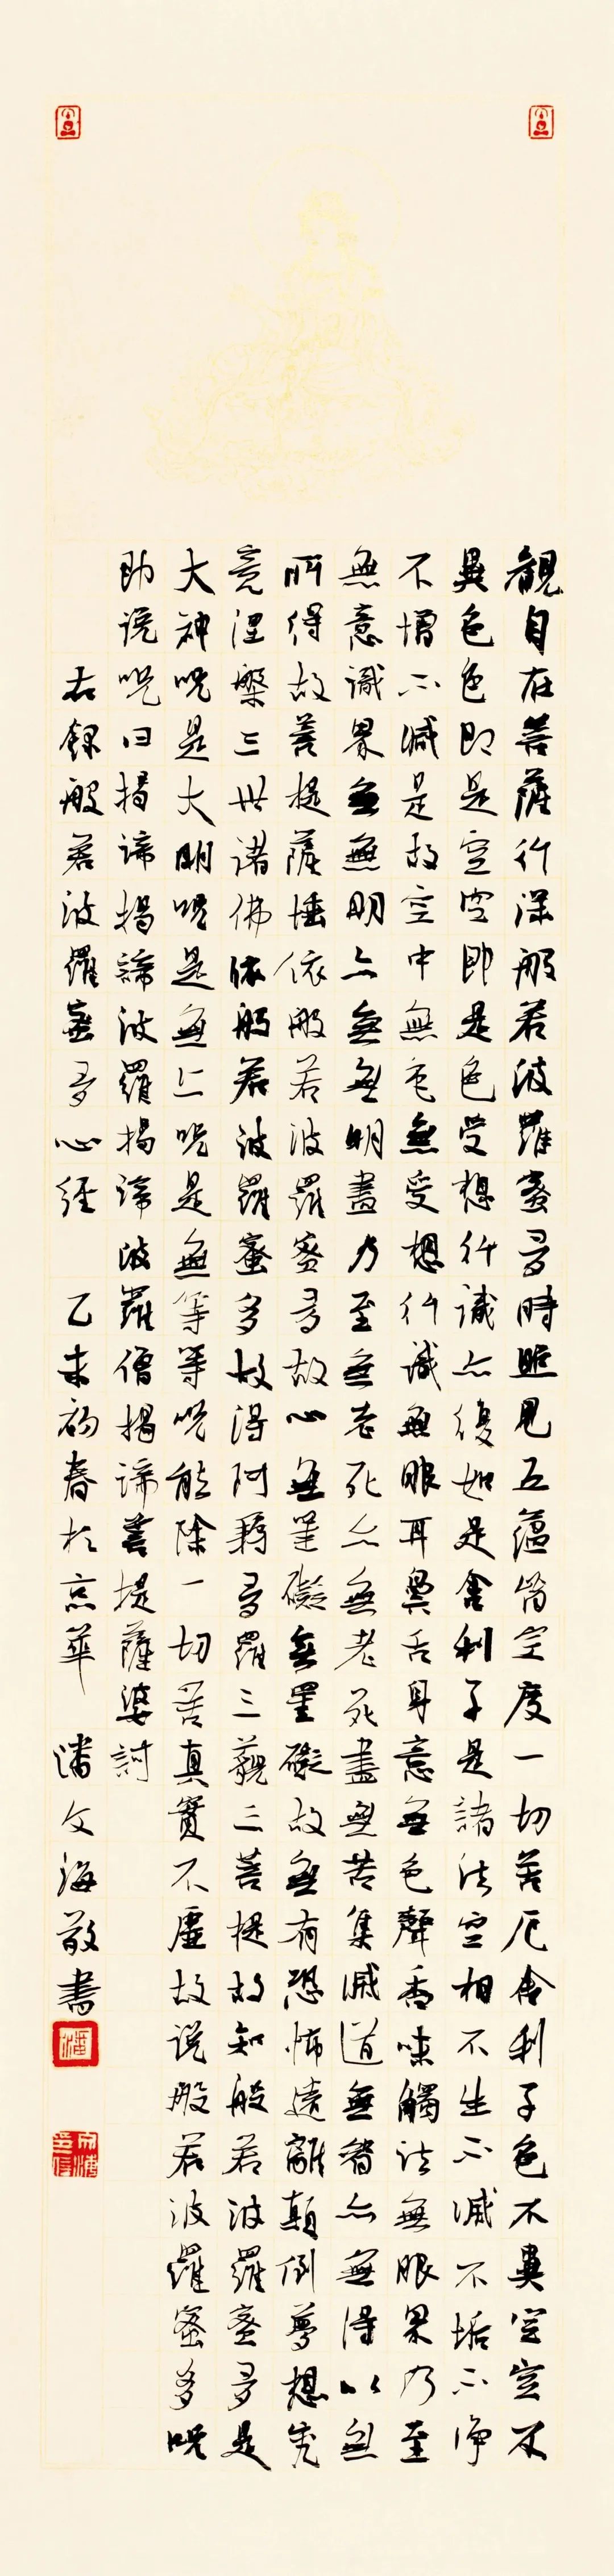 觀自在菩薩行深般若波羅蜜多時照見五蘊皆空度一切苦厄舍利子色不異空空不
異色色即是空空即是色受想行識亦復如是舍利子是諸法空相不生不滅不垢不淨
不增不減是故空中無色無受想行識無眼耳鼻舌身意無色聲香味觸法無眼界乃至
無意識界無無明亦無無明盡乃至無老死亦無老死盡無苦集滅道無智亦無得以無
所得故菩提薩埵依般若波羅蜜多故心無罣礙無罣礙故無有恐怖遠離顛倒夢想究
竟涅槃三世諸佛依般若波羅蜜多故得阿耨多羅三藐三菩提故知般若波羅蜜多是
大神咒是大明咒是無上咒是無等等咒能除一切苦真實不虛故說般若波羅蜜多咒
即說咒曰揭諦揭諦波羅揭諦波羅僧揭諦菩提薩婆訶
右錄般若波羅蜜多心經 乙未初春於京華 潘文海敬書
潘
文海印信